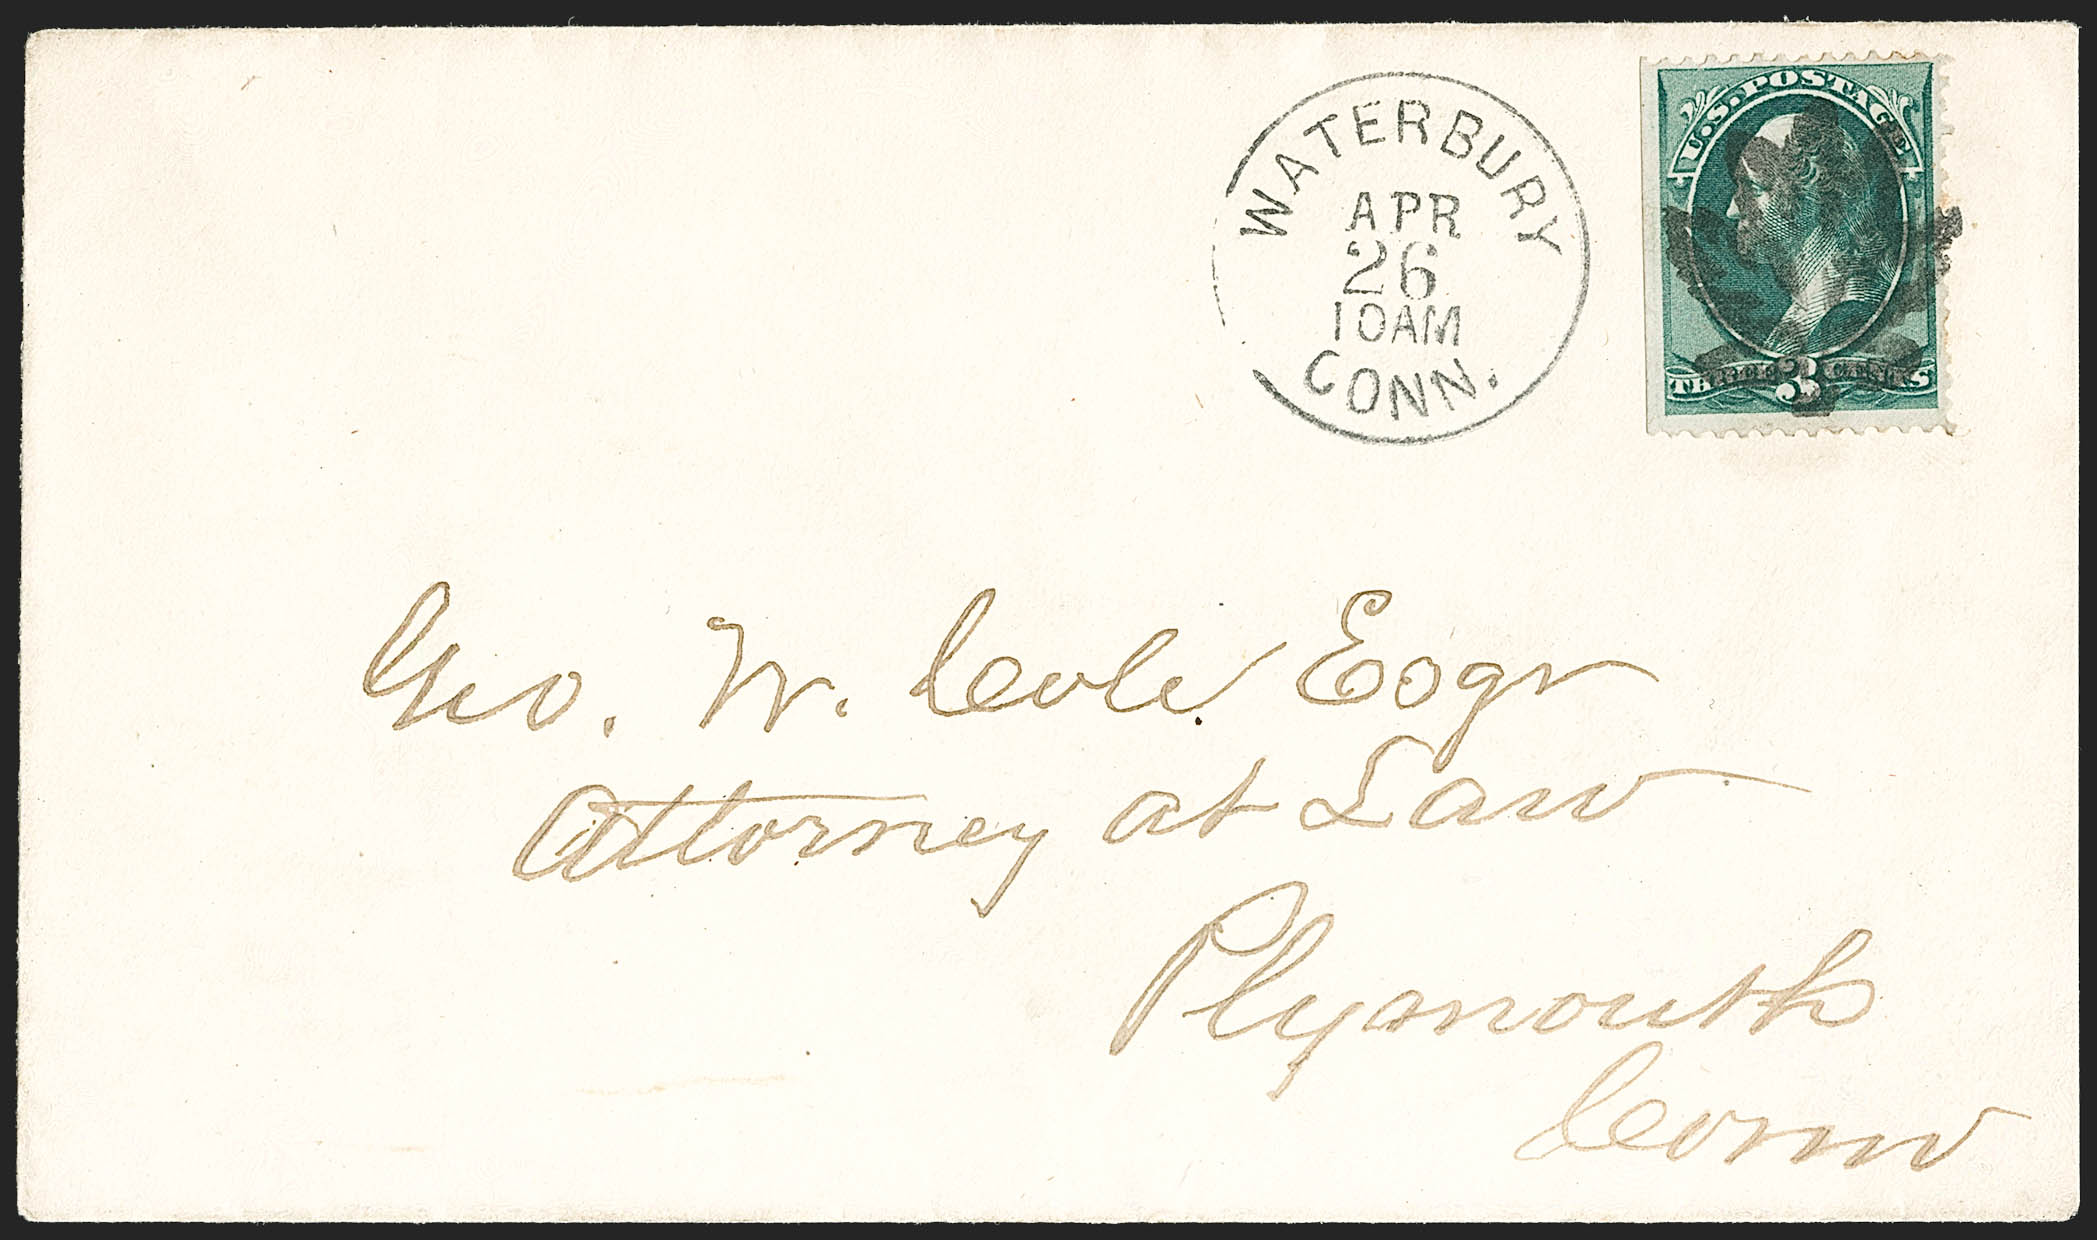 WATERBURY
APR
26
10AM
CONN.
U.S. POSTAGE
THREE 3 CENTS
Geo. W. Cole Esqr
Attorney at Law
Plymouth
Conn